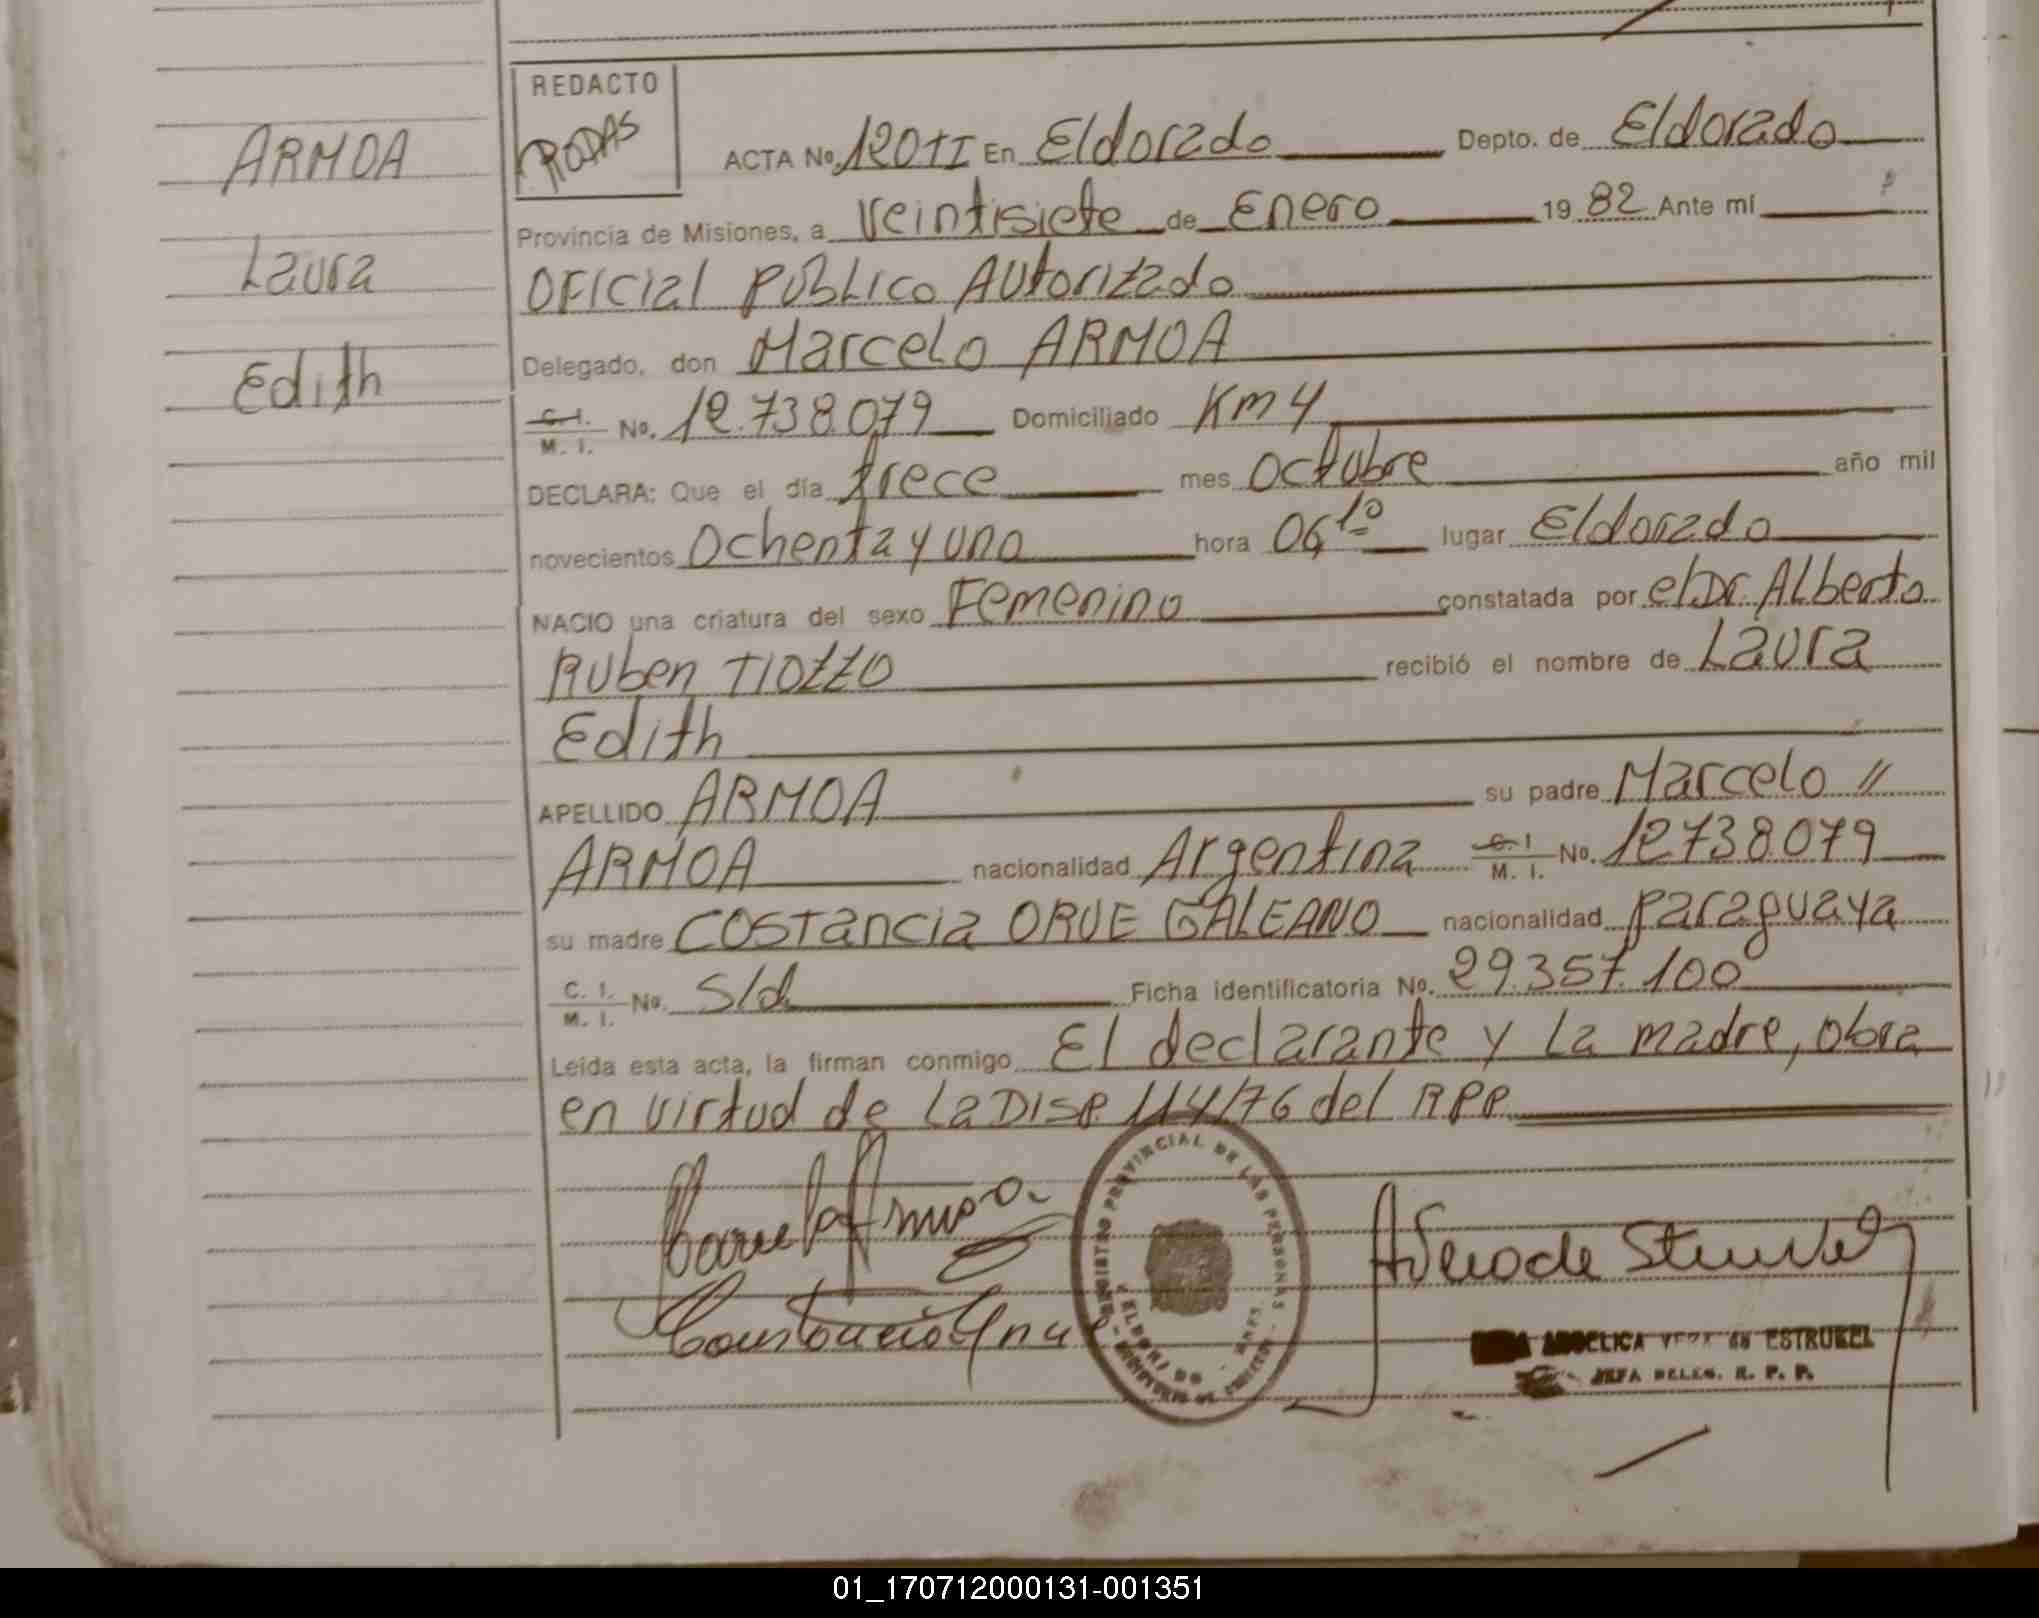 ARMOA
Laura
Edith
REDACTO
RODAS
ACTA No. 120 TI En Eldorado Depto. de Eldorado
Provincia de Misiones, a Veintisiete de Enero 19 82 Ante mí
OFICIAL PÚBLICO AUTORIZADO
Delegado, don Marcelo ARMOA
C. I. / M. I. No. 12.738.079 Domiciliado Km 4
DECLARA: Que el día trece mes Octubre año mil
novecientos Ochenta y uno hora 06,10 lugar Eldorado
NACIO una criatura del sexo Femenino constatada por el Dr. Alberto
Ruben TIOZZO recibió el nombre de Laura
Edith
APELLIDO ARMOA su padre Marcelo //
ARMOA nacionalidad Argentina C. I / M. I. No. 12738079
su madre COSTancia ORUE GALEANO nacionalidad paraguaya
C. I. / M. I. No. S/d Ficha identificatoria No. 29.357.100
Leída esta acta, la firman conmigo El declarante y La madre, obra
en virtud de La DISP. 114/76 del RPP
REGISTRO PROVINCIAL DE LAS PERSONAS
ELDORADO
ANGELICA VERA de ESTRUBEL
JEFA DELEG. R. P. P.
01_170712000131-001351